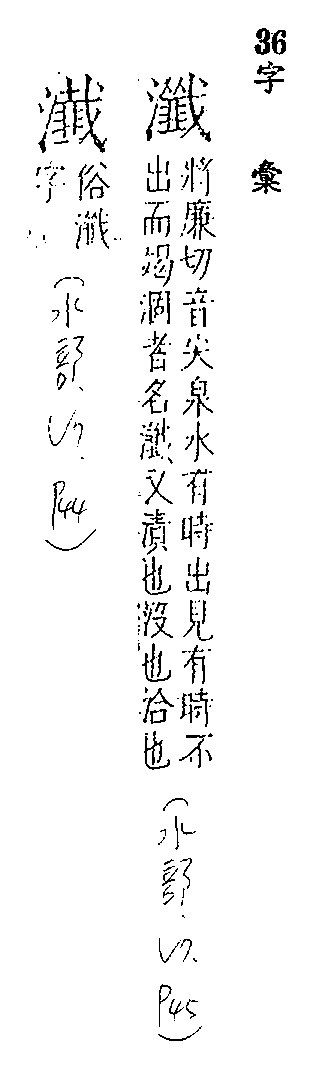 36字彙
瀸
將廉切音尖泉水有時出見有時不
出而竭涸者名瀸又漬也沒也洽也
(水部, 17, P45)
俗瀸
字
(水部, 17, P44)